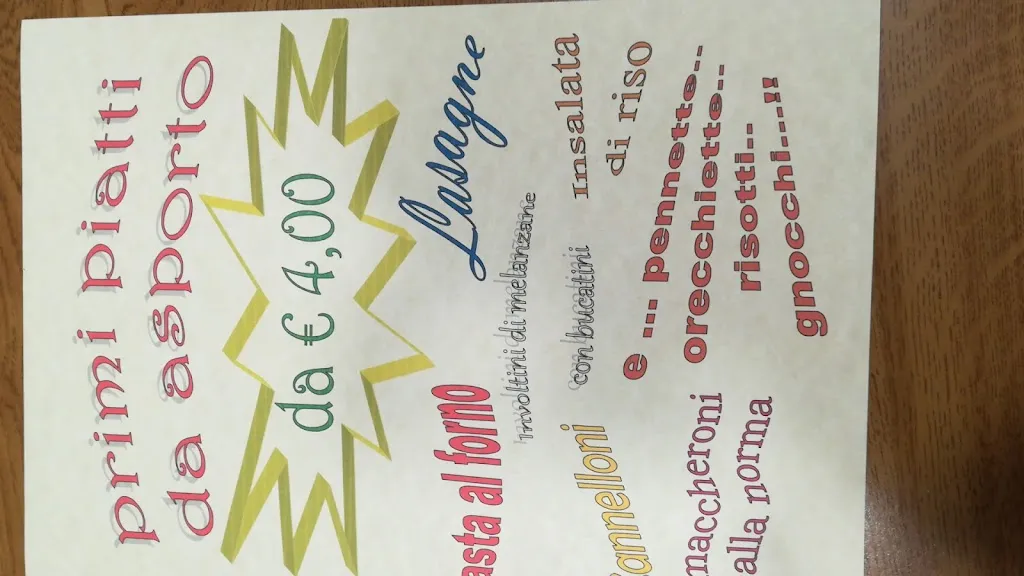 primi piatti
da asporto
da € 4,00
Lasagne
asta al forno
Involtini di melanzane
con bucatini
Insalata
di riso
annelloni
e ... pennette...
orecchiette..
risotti..
gnocchi...!!
maccheroni
alla norma